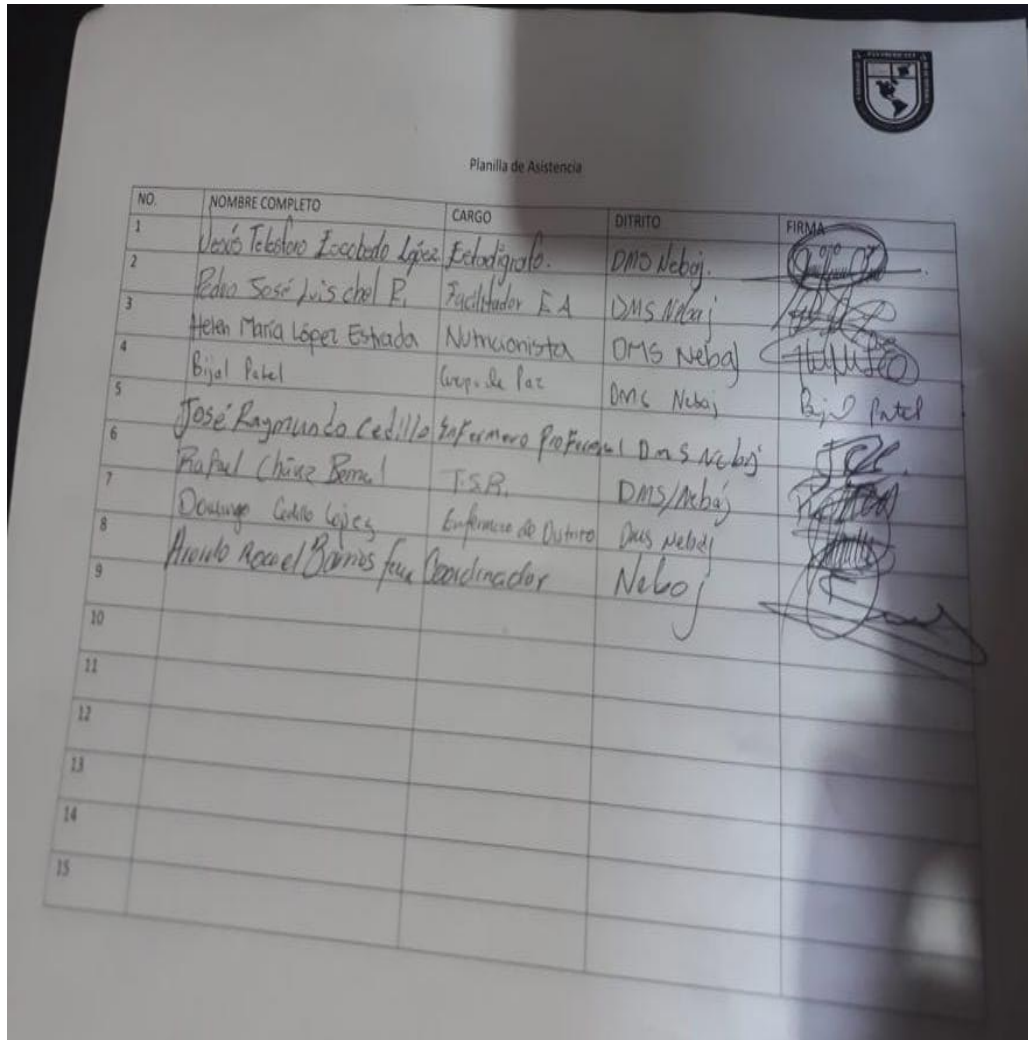 Planilla de Asistencia
NO. NOMBRE COMPLETO CARGO DITRITO FIRMA
1 Jesús Telesforo Escobedo López Estadígrafo. DMS Nebaj.
2 Pedro José Luis chel P. Facilitador EA DMS Nebaj
3 Helen María López Estrada Nutricionista DMS Nebaj
4 Bijal Patel Cuerpo de Paz DMS Nebaj Bijal Patel
5 José Raymundo Cedillo Enfermero Profesional DMS Nebaj
6 Rafael Chávez Bernal T.S.R. DMS/Nebaj
7 Domingo Cedillo López Enfermero de Distrito DMS Nebaj
8 Barrios Coordinador Nebaj
9
10
11
12
13
14
15